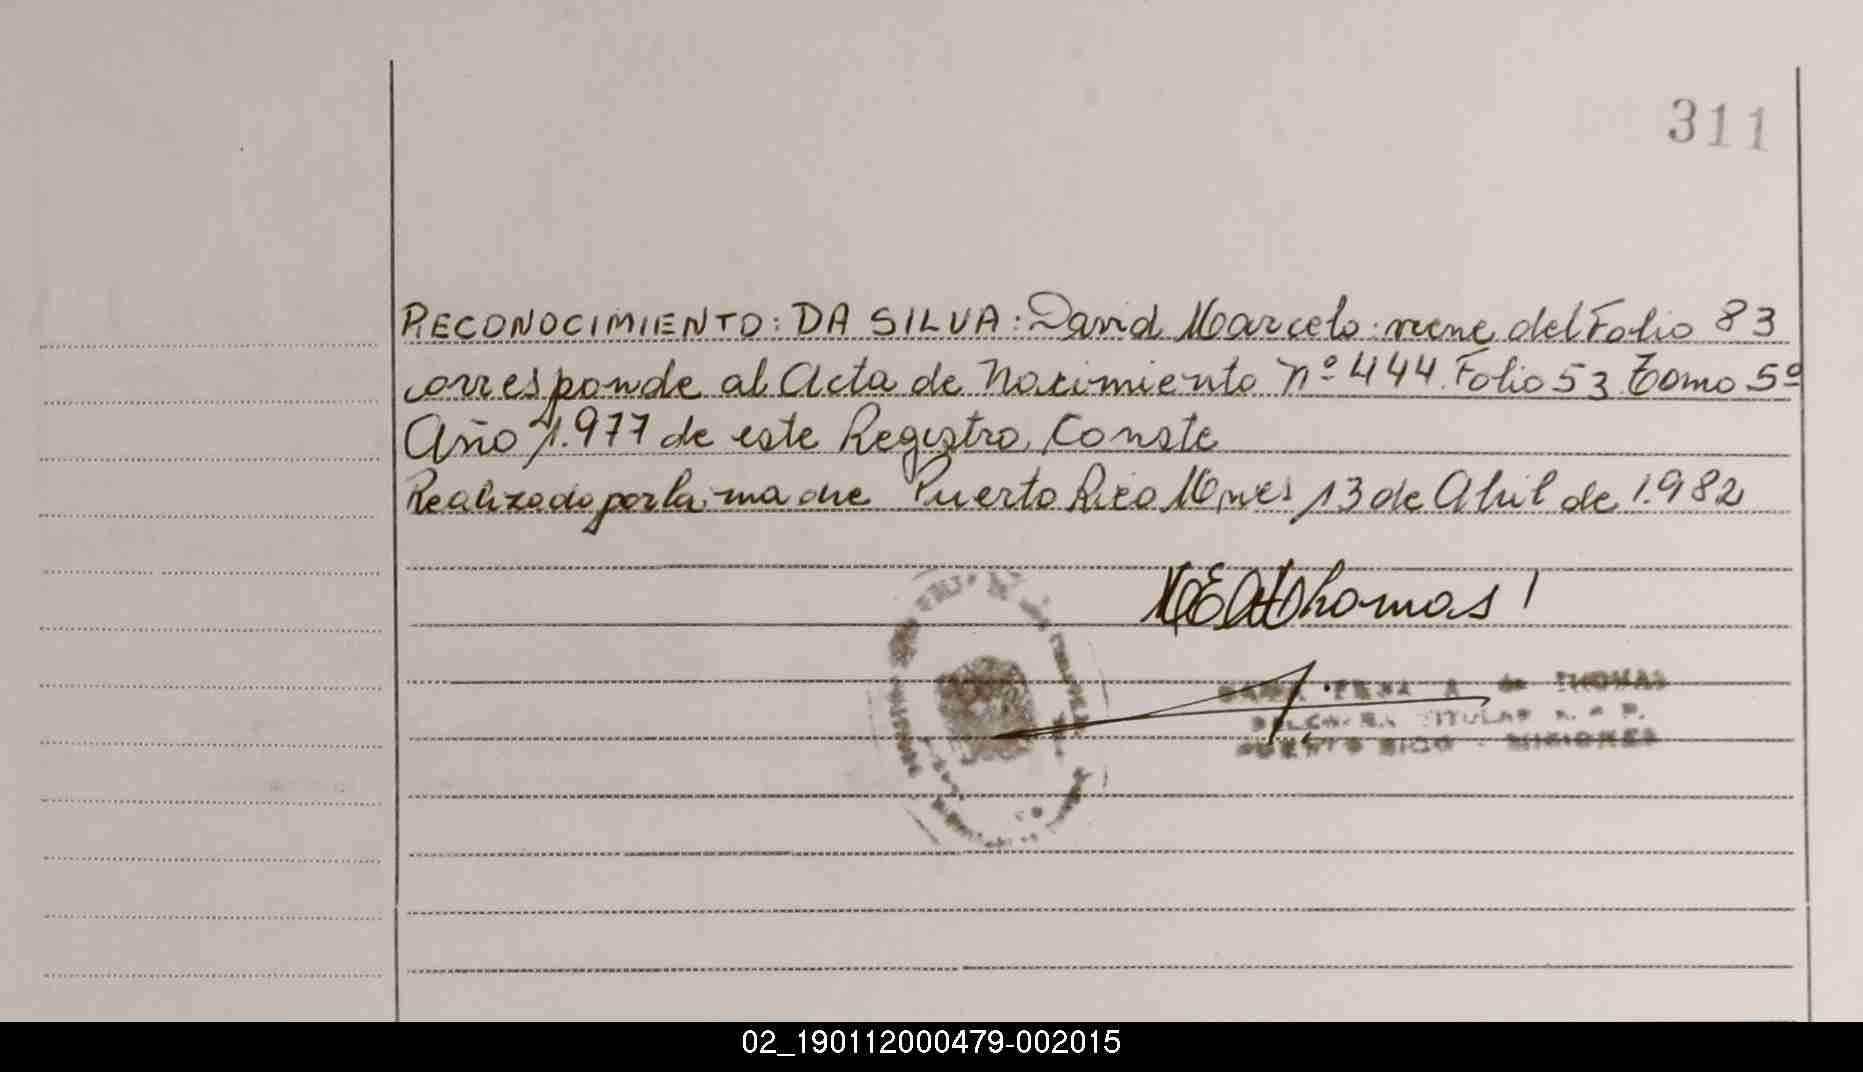 311
RECONOCIMIENTO: DA SILVA: David Marcelo: viene del Folio 83
corresponde al Acta de Nacimiento nº 444. Folio 53 Tomo 5º
Año 1.977 de este Registro, Conste
Realizado por la madre Puerto Rico Mnes 13 de Abril de 1.982
Thomas
de THOMAS
TITULAR
PUERTO RICO - MISIONES
02_190112000479-002015